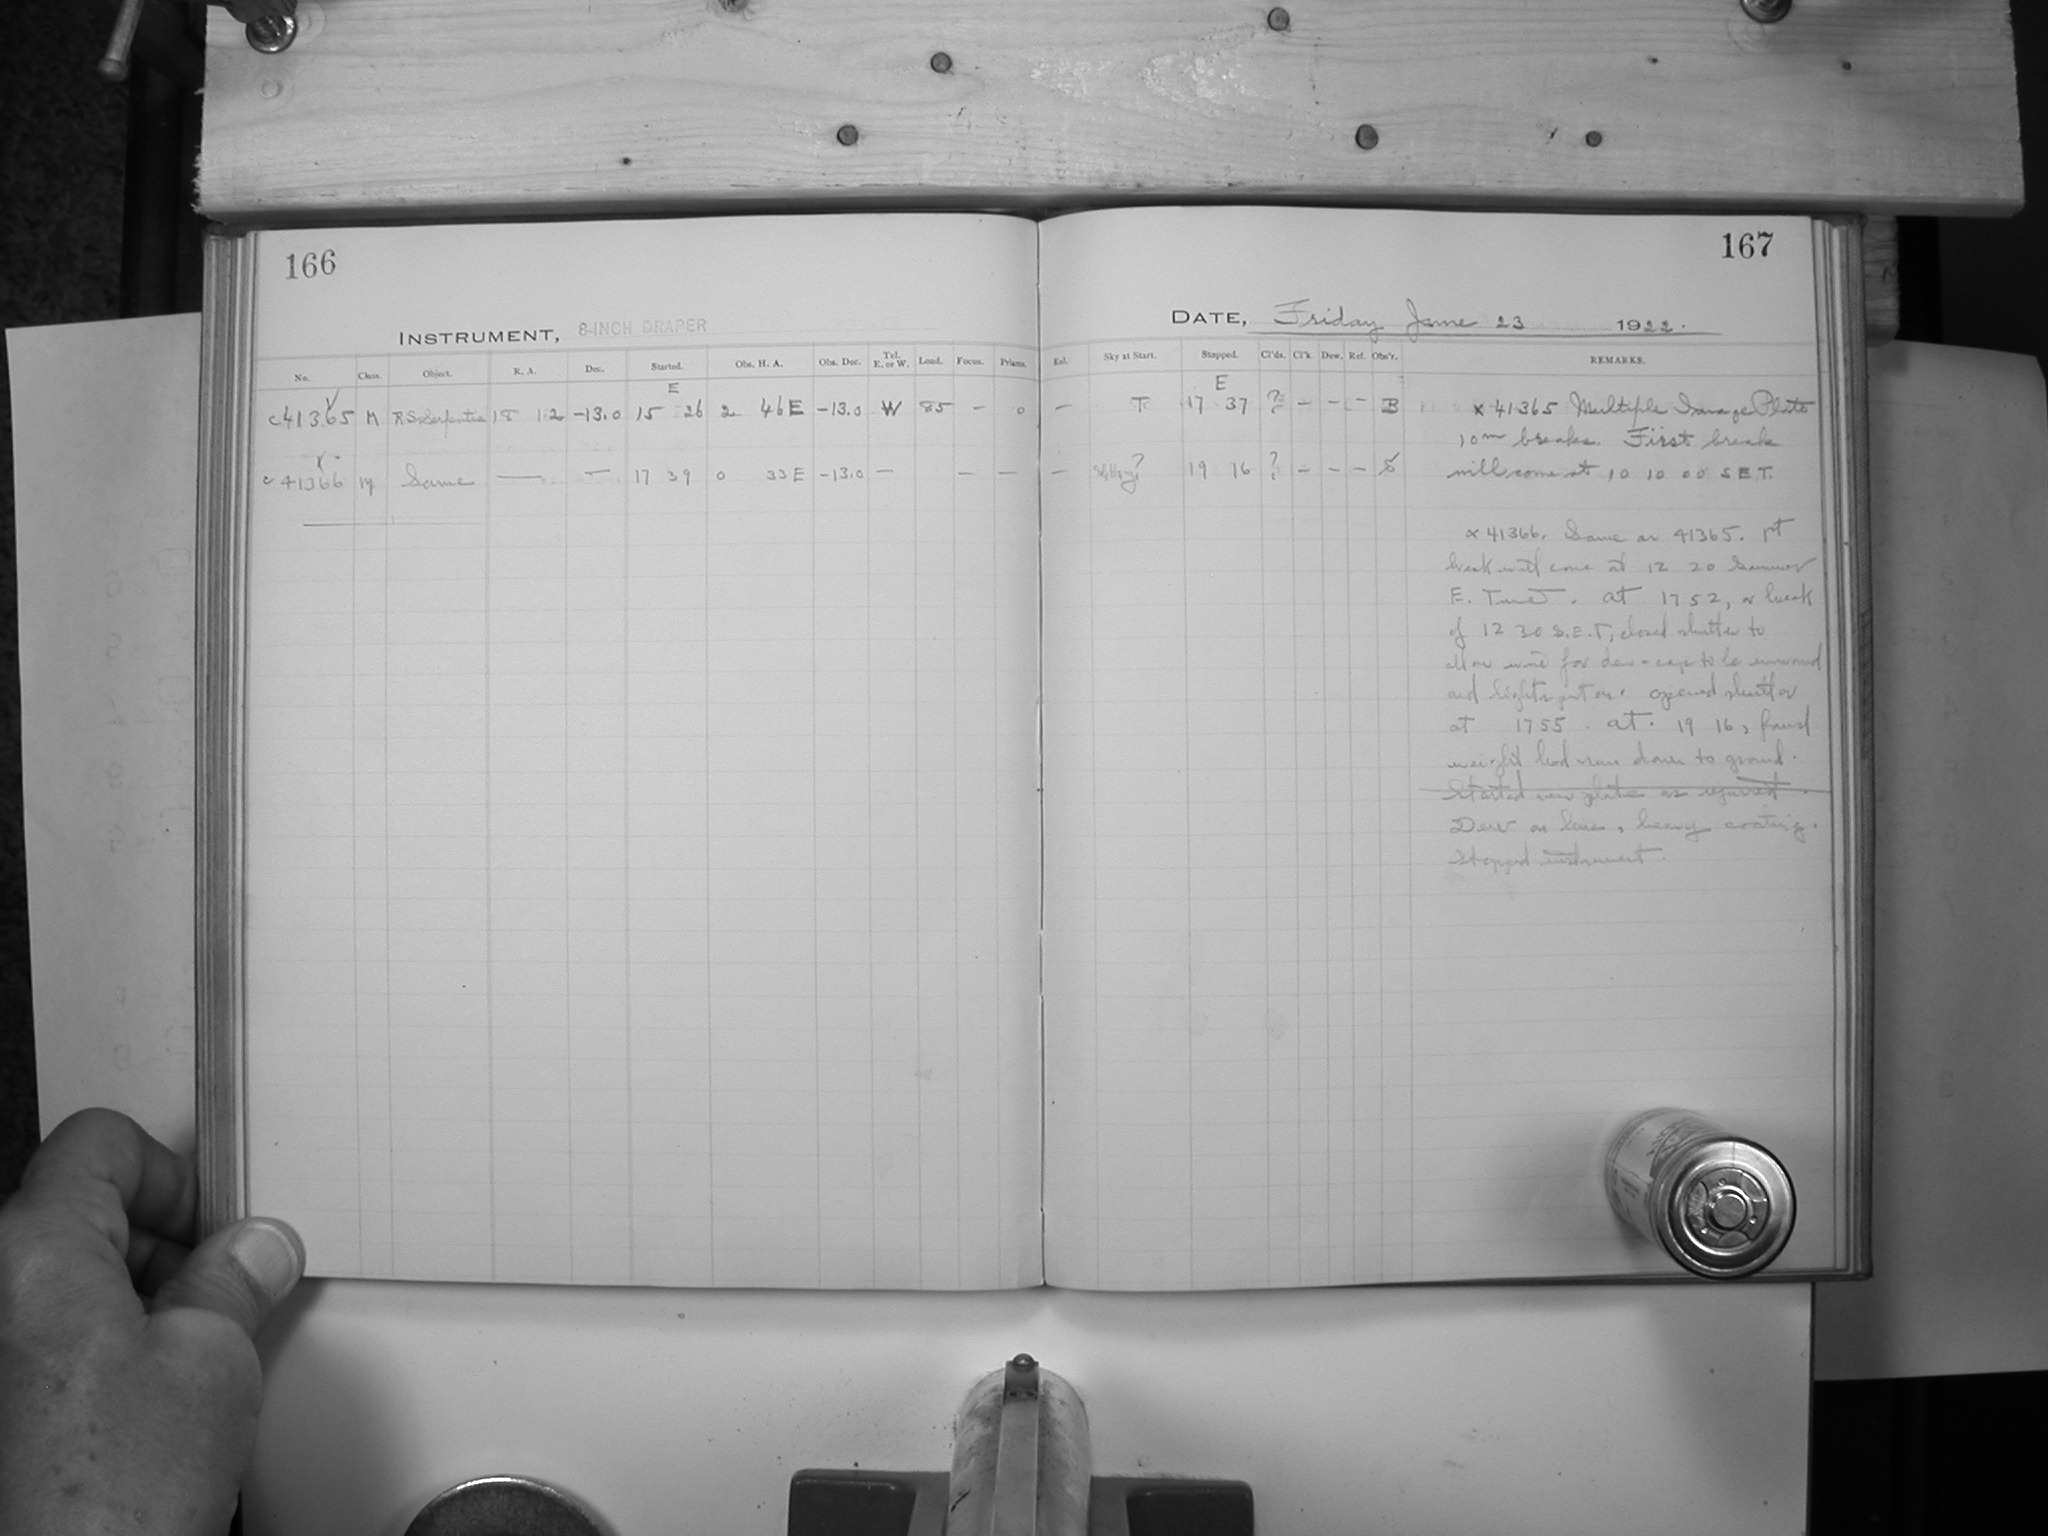 166
INSTRUMENT, 8-INCH DRAPER
No. Class. Object. R. A. Dec. Started. Obs. H. A. Obs. Dec. Tel. E. or W. Load. Focus. Prisms.
E
c41365 M RS Serpentis 18 12 -13.0 15 26 2 46E -13.0 W 85 - 0
c41366 M Same — — 17 39 0 33E -13.0 — — —
167
DATE, Friday June 23 1922.
Exl. Sky at Start. Stopped. Cl'ds. Cl'k. Dew. Ref. Obs'r. REMARKS.
E
— T. 17 37 ? — — — B
— ? 19 16 ? — — — S
x 41365 Multiple Image Plate
10m breaks. First break
will come at 10 10 00 S.E.T.
x 41366. Same as 41365. 1st
break will come at 12 20 Summer
E. Time. At 1752, or break
of 12 30 S.E.T, closed shutter to
allow time for dew-cap to be
and lights put on. Opened shutter
at 1755. At 19 16, found
weight had run down to ground.
Started new plate as required.
Dew on lens, heavy coating.
Stopped instrument.